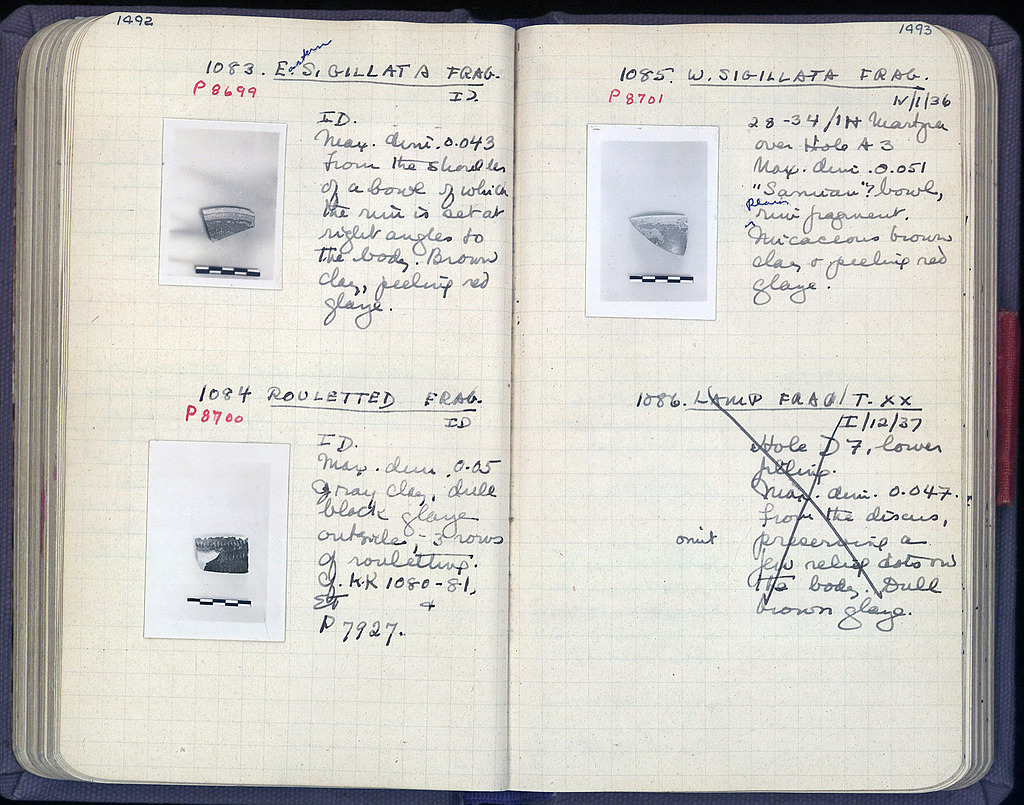 1492
1083. E. S. GILLATA FRAG.
eastern
P 8699
ID.
ID.
Max. dim. 0.043
From the shoulder
of a bowl of which
the rim is set at
right angles to
the body. Brown
clay, peeling red
glaze.
1084 ROULETTED FRAG.
P 8700
ID
ID.
Max. dim. 0.05
Gray clay, dull
black glaze
outside, - 3 rows
of rouletting.
Cf. KK 1080-81,
ET &
P 7927.
1493
1085. W. SIGILLATA FRAG.
P 8701
IV/1/36
28-34/ΙΗ Martyra
over Hole A 3
Max. dim. 0.051
"Samian"? bowl,
plain
rim fragment.
Micaceous brown
clay & peeling red
glaze.
1086. LAMP FRAG/T. XX
I/12/37
Hole D 7, lower
filling.
Max. dim. 0.047.
From the discus,
omit
preserving a
few relief dots on
the body. Dull
brown glaze.